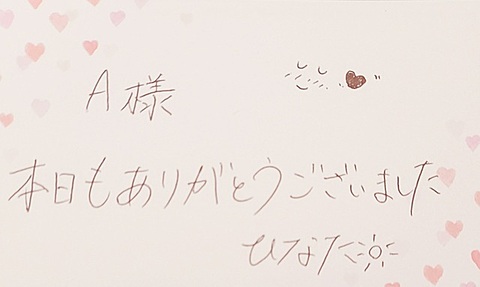 A様
本日もありがとうございました
ひなた